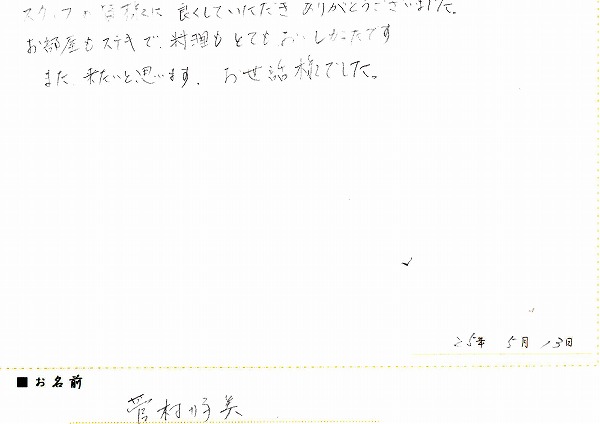 スタッフの皆様に良くしていただきありがとうございました。
お部屋もステキで、料理もとてもおいしかったです
また来たいと思います。お世話様でした。
25年 5月 13日
■お名前
菅村好美